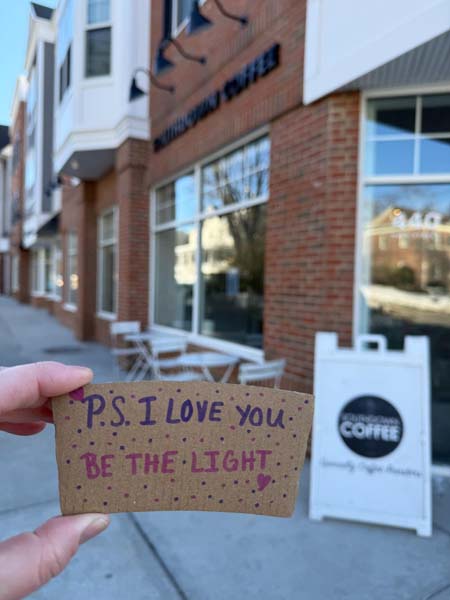 COFFEE
440
P.S. I LOVE YOU
BE THE LIGHT
COFFEE
Specialty Coffee Roasters